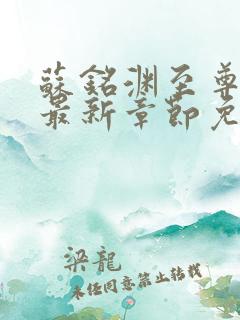 蘇銘淵至尊
最新章節免
梁龍
未经同意禁止转载